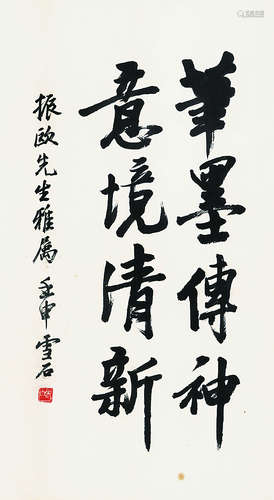 筆墨傳神
意境清新
振欧先生雅属 壬申 雪石